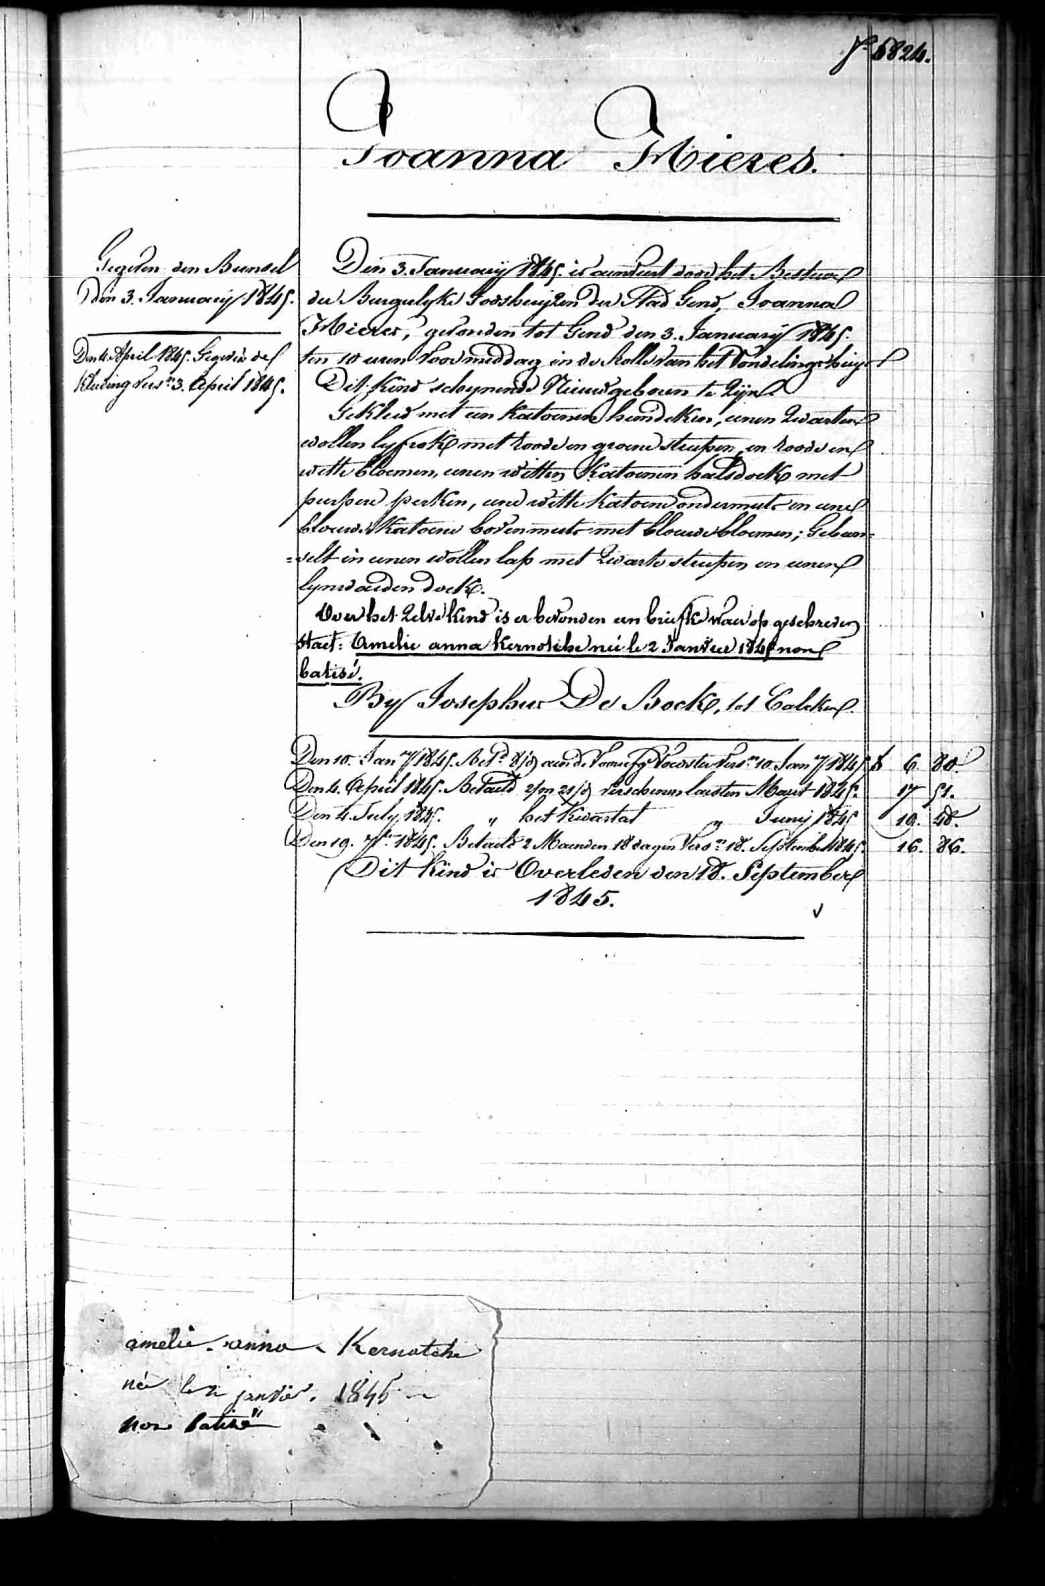 5824.
Joanna Mieres.
Gegeven den Bunsel
den 3. January 1845.
Den 4. April 1845. Gegeven de
kleeding vers.n 3. April 1845.
Den 3. January 1845. is aenveert door het Bestuer
der Burgelyke Godshuijzen der Stad Gend, Joanna
Mieres, gevonden tot Gend den 3. January 1845.
ten 10 uren voormiddag in de Rolle van het Vondelingshuijs
Dit kind schynende Nieuwgeboren te Zyn.
Gekleed met een katoenen hemdeken, eenen Zwarten
wollen lyfrok met roode en groene streepen, en roode en
witte bloemen, eenen witten katoenen halsdoek met
peerpere perken, eene witte katoene ondermuts en eene
blouwe katoene bovenmuts met blouwe bloemen; Gebun=
=selt in eenen wollen lap met Zwarte streepen en eenen
lynwaeden doek.
Over het Zelve kind is er bevonden een briefke waer op geschreven
staet: Amelie anna Kernotche né le 2 Janvier 1845 non
batisé.
By Josephus De Bock, tot Calcken.
Den 10. Jan.ry 1845. Bet.d aen de Voorster vers.n 10. Jan.ry 1845. f 6. 80.
Den 4. April 1845. Betaeld 2/m 21/d verschenen laesten Maert 1845. 17 51.
Den 4. July 1845. „ het kwartal „ Juny 1845 19. 28.
Den 19. 7b.r 1845. Betaeld 2 Maenden 18 dagen Vers.n 18. September 1845. 16. 86.
Dit kind is Overleden den 18. September
1845.
amelie anna Kernotche
né le 2 janvier. 1845
non batisé